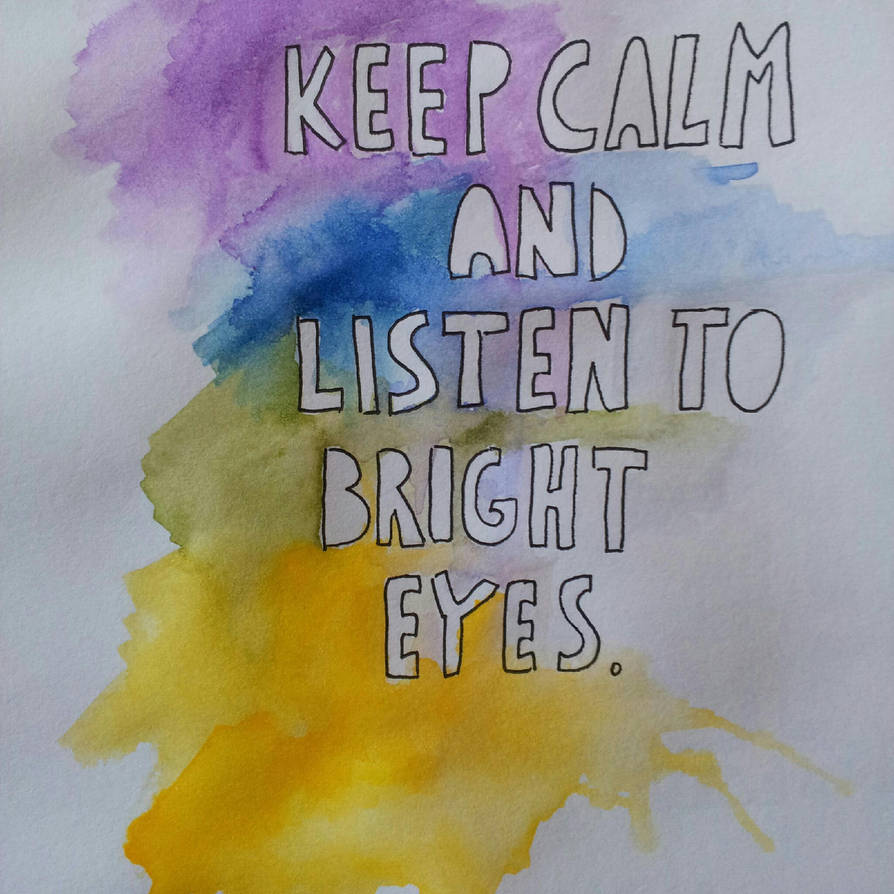 KEEP CALM
AND
LISTEN TO
BRIGHT
EYES.